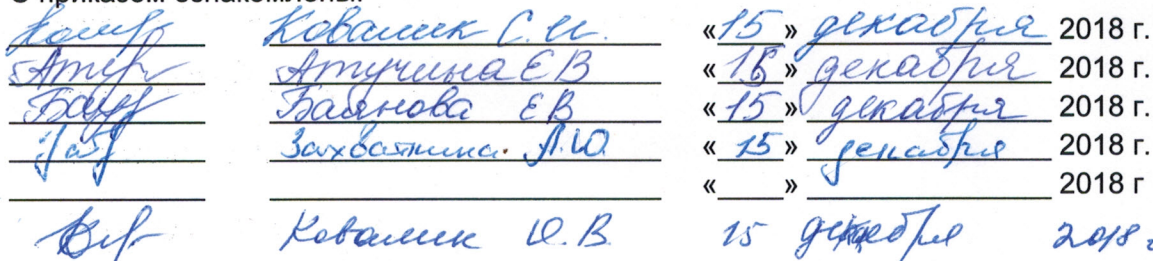 С приказом ознакомлены:
Ковалик С.И. «15» декабря 2018 г.
Атучина Е В «16» декабря 2018 г.
Баянова Е В «15» декабря 2018 г.
Захваткина Л.Ю «15» декабря 2018 г.
« » 2018 г
Ковалик Ю.В. 15 декабря 2018 г